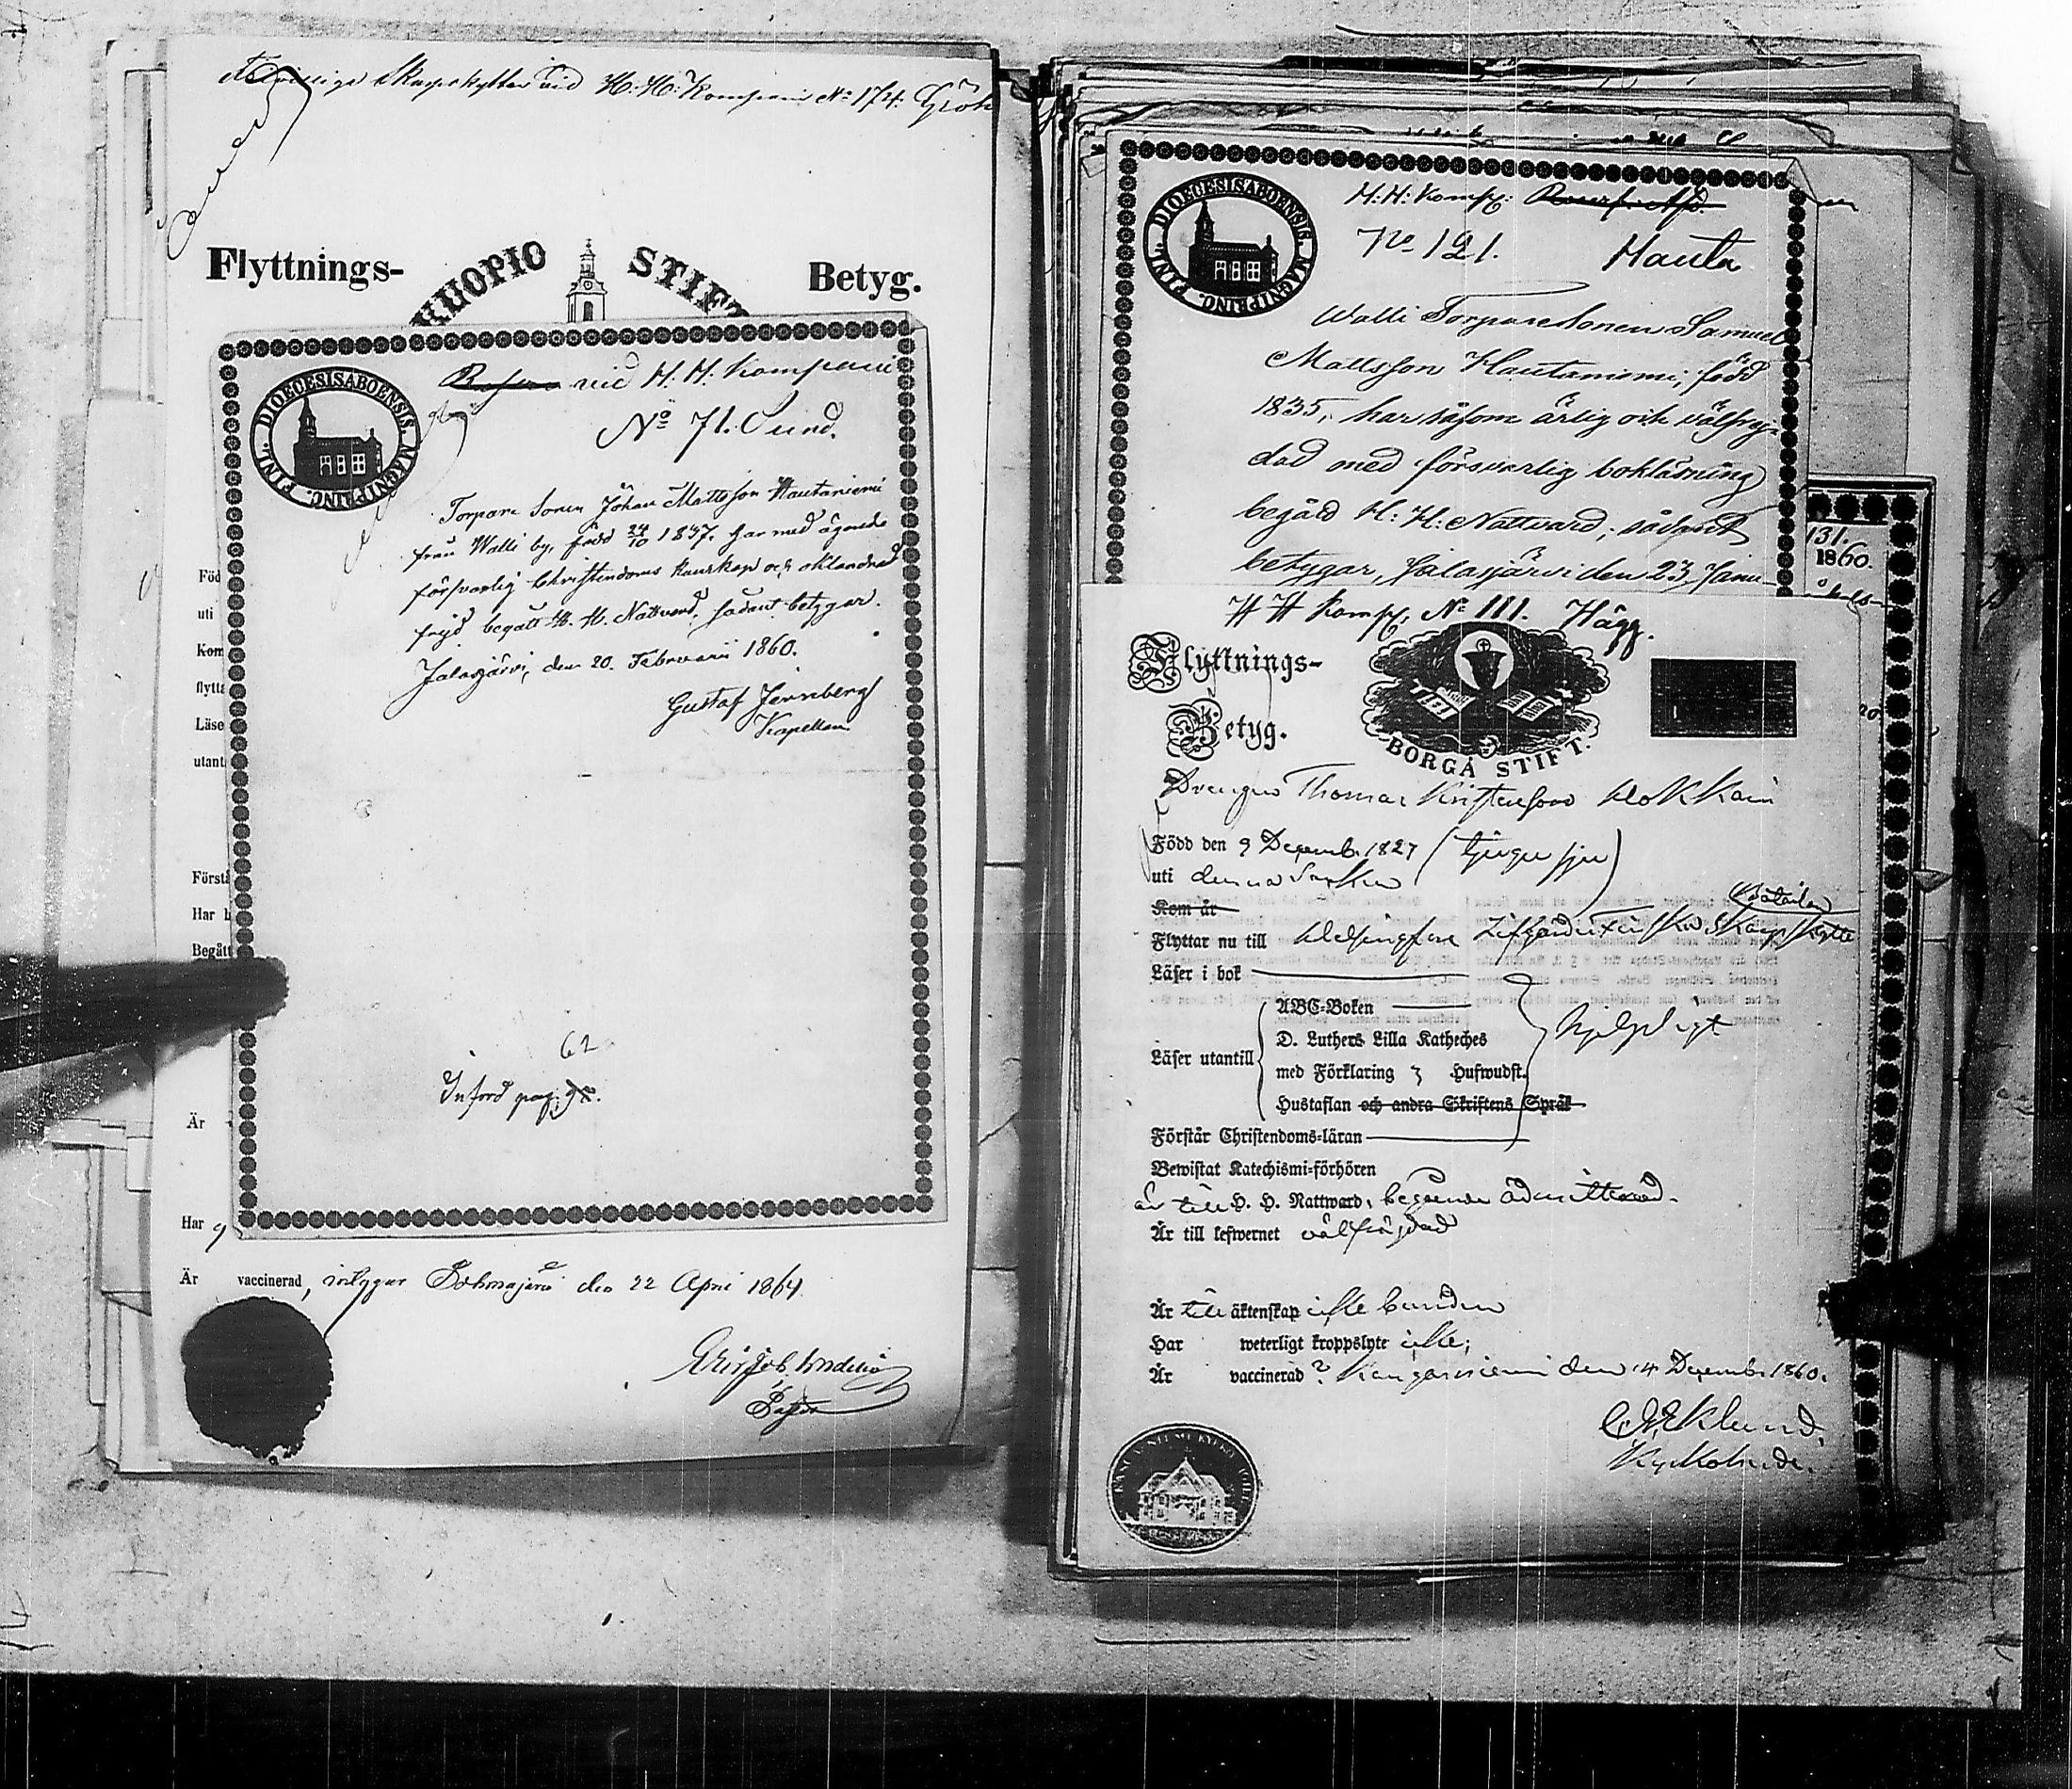 Skarpskytten vid H. H. Kompani No 174. Gröh
Flyttnings- Betyg.
KUOPIO STIFT
vid H. H. Kompani
No 71. Sund.
FINL. DIOECESISABOENSIS. MAGNIPRINC.
Torpare Sonen Johan Mattsson Hautaniemi
från Walli by, född 24/10 1837, har med ägande
försvarlig Christendoms kunskap och oklandrad
frejd begått H. H. Nattvard, sådant betygar.
Jalasjärvi, den 20. Februarii 1860.
Gustaf Jernberg
Kapellan
62
Införd pag.
Föd
uti
Kom
flytta
Läse
utant
Förstå
Har b
Begått
Är
Har
Är vaccinerad, intygar den 22 April 1864.
Pastor
H: H: Komp:
No 121. Hauta
FINL. DIOECESISABOENSIS. MAGNIPRINC.
Walli Torparesonen Samuel
Mattsson Hautaniemi, född
1835, har såsom ärlig och välfrej-
dad med försvarlig bokläsning
begått H: H: Nattvard; sådant
betygar, Jalasjärvi den 23 Janu-
131.
1860.
H H Komp. No 111. Hägg.
Flyttnings-
Betyg.
BORGÅ STIFT.
Drengen Thomas Kristersson Hokkain
Född den 9 Decemb. 1827 (tjugu sju)
uti denna Socken
Kom år
Bataillon
Flyttar nu till Helsingfors Lifgardets Finska Skarpskytte
Läser i bok
ABC-Boken
D. Luthers Lilla Katheches
Läser utantill hjelpligt
med Förklaring Hufwudst.
Hustaflan och andra Skriftens Språk
Förstår Christendoms-läran
Bewistat Katechismi-förhören
är till H. H. Nattward, begående admitterad.
Är till lefwernet välfräjdad
Är till äktenskap icke bunden
Har weterligt kroppslyte icke;
Är vaccinerad? Kangasniemi den 14 Decemb. 1860.
Eklund,
Kyrkoherde.